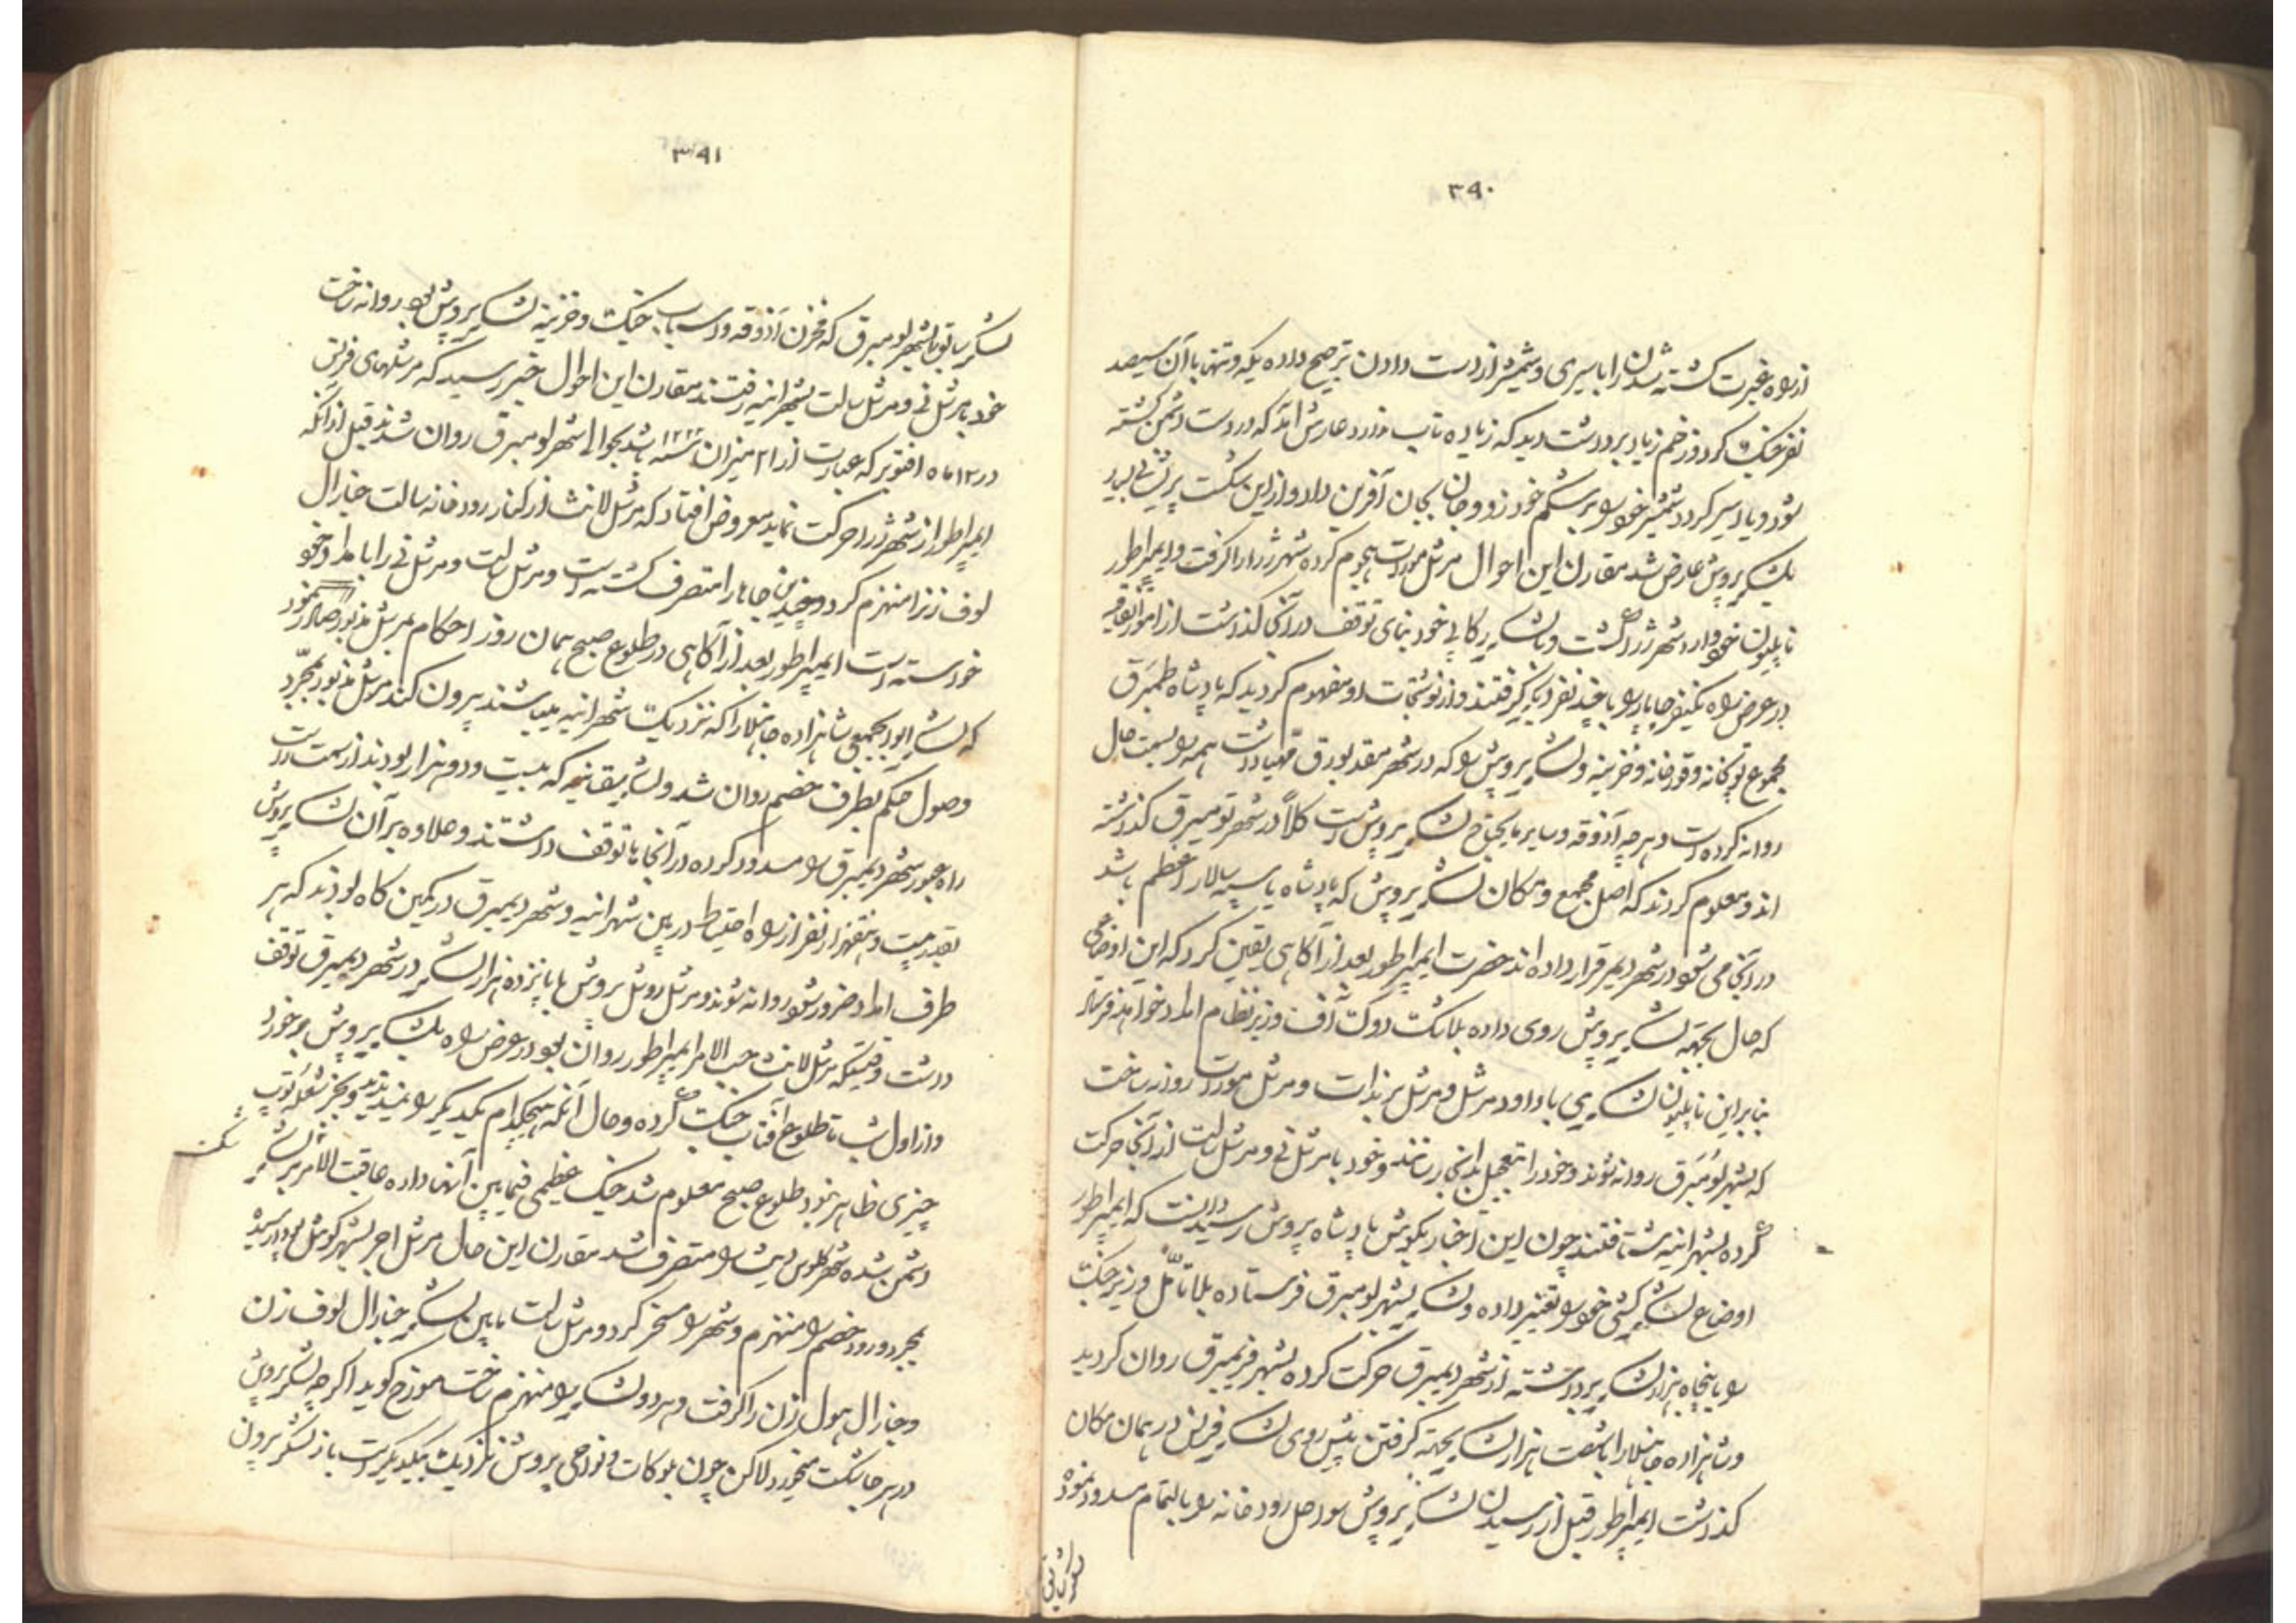 ۳۹۰
از راه غیرت کشته شدن را با سیری و شمشیر از دست دادن ترجیح داده یکه و تنها با آن سیصد
نفر جنگ کرد و زخم زیاد برداشت دید که زیاده تاب ندارد عارش آمد که در دست دشمن کشته
شود و یا دسیر کردد شمشیر خود را بر شکم خود زد و جان بجان آفرین داد و از این شکست پریشانی بسیار
بلشکر پروش عارض شد مقارن این احوال مرشل مورات هجوم کرده شهر ژرا را گرفت و ایمپراطور
ناپلیون خود وارد شهر ژرا گشت و با لشکر رکابی خود بنای توقف در آنجا گذاشت از امور اتفاقیه
در عرض راه یکنفر چاپار را با چند نفر دیگر گرفتند و از نوشتجات او مفهوم گردید که پادشاه
مجموع توپخانه و قورخانه و خزینه و لشکر پروش را که در شهر مقدبورق مهیا داشت همه را بسمت حال
روانه کرده است و هر چه آذوقه و سایر مایحتاج لشکر پروش است کلاً در شهر نومبرق گذاشته
اند و معلوم کردند که اصل مجمع و مکان لشکر پروش که پادشاه یا سپه سالار اعظم باشد
در آنجا می شود در شهر دیمر قرار داده اند حضرت ایمپراطور بعد از آگاهی یقین کرد که این اوضاعی
که حال بجهة لشکر پروش روی داده بلاشک دوکت آف وزیر نظام امداد خواهد فرستاد
بنابراین ناپلیون لشکری با داود مرشل و مرشل برنادات و مرشل مورات روانه ساخت
که بشهر نومبرق روانه شوند و خود را بتعجیل بدانجا رسانند و خود با مرشل نی و مرشل سالت از آنجا حرکت
کرده بشهر انیه شتافتند چون این اخبار بگوش پادشاه پروش رسید دانست که ایمپراطور
اوضاع لشکر کشی خود را تغییر داده و لشکر بشهر نومبرق فرستاده بلا تأمل وزیر جنگ
را با پنجاه هزار لشکر برداشته از شهر دیمبرق حرکت کرده بشهر فریمبرق روان گردید
و شاهزاده حانلا را با شصت هزار لشکر بجهة گرفتن پیش روی لشکر فرنس در همان مکان
گذاشت ایمپراطور قبل از رسیدن لشکر پروش سواحل رودخانه را بالتمام مسدود نموده
لشکر سابق
۳۹۱
لشکر سابق بشهر نومبرق که مخزن آذوقه و اسباب جنگ و خزینه لشکر پروش بود روانه ساخت
خود با مرشل نی و مرشل سالت بشهر انیه رفتند مقارن این احوال خبر رسید که مرشلهای فرنس
در ۱۲ ماه اقتوبر که عبارت از ۲۱ میزان سنه ۱۲۲۲ باشد بحوالی شهر نومبرق روان شدند قبل از آنکه
ایمپراطور از شهر ژرا حرکت نماید معروض افتاد که مرشل لانث از کنار رودخانه سالت جنارال
لوف زن را منهزم کرد و چندین جاها را متصرف گشته است و مرشل سالت و مرشل نی را با مداد خود
خواسته است ایمپراطور بعد از آگاهی در طلوع صبح همان روز احکام بمرشل مذبور صادر نمود
که لشکر ابوابجمعی شاهزاده حانلا را که نزدیک شهر انیه میباشند بیرون کند مرشل مذبور بمجرد
وصول حکم بطرف خصم روان شد و لشکر بیقانیه که بیست و دو هزار بودند از سمت راست
راه عبور شهر دیمبرق را مسدود کرده در آنجا با توقف داشتند و علاوه بر آن لشکر پروش
بقدر بیست و هفتهزار نفر از راه احتیاط در بین شهر انیه و شهر دیمبرق در کمین گاه بودند که هر
طرف امداد ضرور شود روانه شوند و مرشل روشل پروش با پانزده هزار لشکر در شهر دیمبرق توقف
داشت وقتیکه مرشل لانث حسب الامر ایمپراطور روان بود در عرض راه بلشکر پروش برخورد
و از اول شب تا طلوع آفتاب جنگ کرده و حال آنکه هیچکدام یکدیگر را نمیدیدند و بجز شعله توپ
چیزی ظاهر نبود طلوع صبح معلوم شد جنک عظیمی فیمابین آنها داده عاقبت الامر بر لشکر شکست
دشمن شده شهر کلوس ویت را متصرف شد مقارن این حال مرشل اجر بشهر کوشل بود رسید
بمجرد ورود خصم را منهزم و شهر را مسخر کرد و مرشل سالت مابین لشکر جنارال لوف زن
و جنارال هول زن را گرفت و هر دو لشکر را منهزم ساخت مورخ گوید اگر چه لشکر پروش
در هر جا شکست میخورد لاکن چون بلوکات و نواحی پروش نزدیک بیکدیگر است باز لشکر پروش